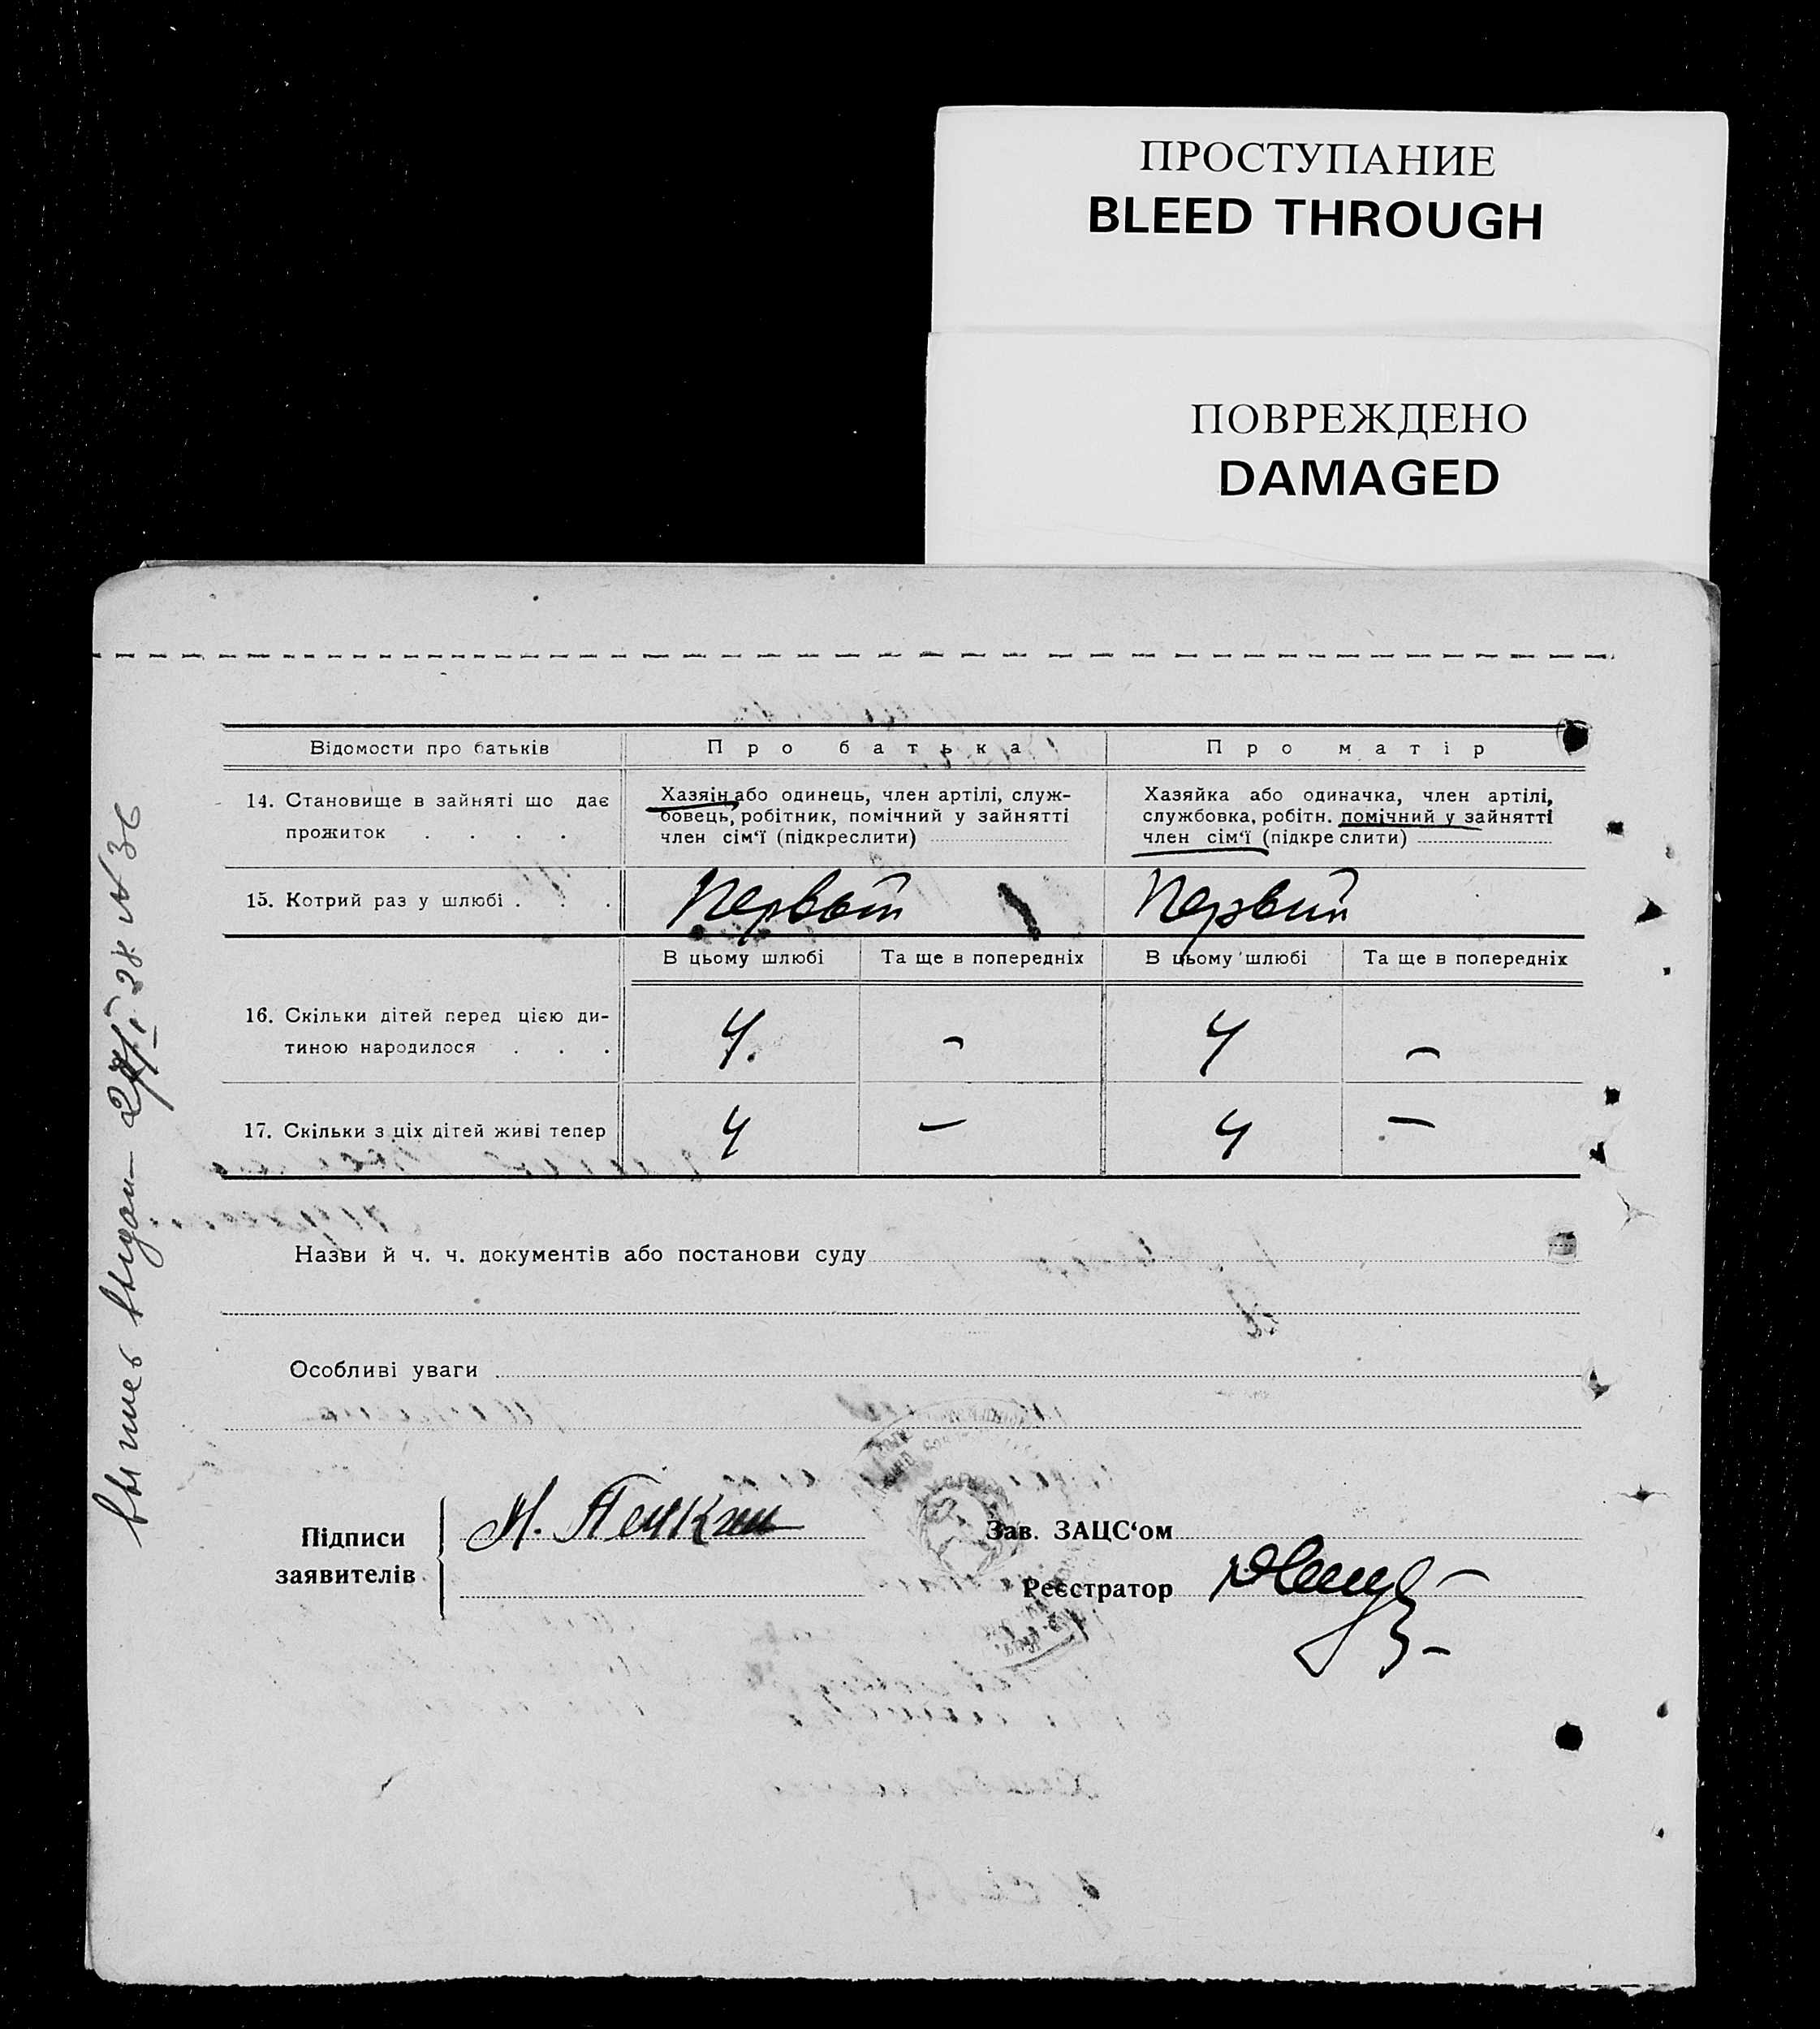 ПРОСТУПАНИЕ
BLEED THROUGH
ПОВРЕЖДЕНО
DAMAGED
Відомости про батьків
Про батька
Про матір
14. Становище в зайняті що дає
прожиток . . . .
Хазяін або одинець, член артілі, служ-
бовець, робітник, помічний у зайнятті
член сім‘ї (підкреслити)
Хазяйка або одиначка, член артілі,
службовка, робітн. помічний у зайнятті
член сім‘ї (підкреслити)
15. Котрий раз у шлюбі . . .
Первый
Первий
В цьому шлюбі
Та ще в попередніх
В цьому шлюбі
Та ще в попередніх
16. Скільки дітей перед цією ди-
тиною народилося . . .
4.
-
4
-
17. Скільки з ціх дітей живі тепер
4
-
4
-
Назви й ч. ч. документів або постанови суду
Особливі уваги
Підписи
заявителів
М.
Зав. ЗАЦС‘ом
Реєстратор
выпись выдан 28 N 36